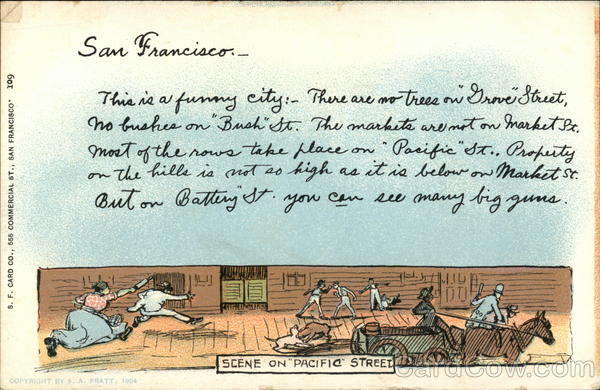 San Francisco.-
This is a funny city:- There are no trees on "Grove" Street,
No bushes on "Bush" St. The markets are not on Market St.
Most of the rows take place on "Pacific" St., Property
on the hills is not so high as it is below on Market St.
But on Battery" St. you can see many big guns.
S. F. CARD CO., 555 COMMERCIAL ST., SAN FRANCISCO' 109
SCENE ON "PACIFIC" STREET
COPYRIGHT BY S. A. PRATT, 1904
CardCow.com